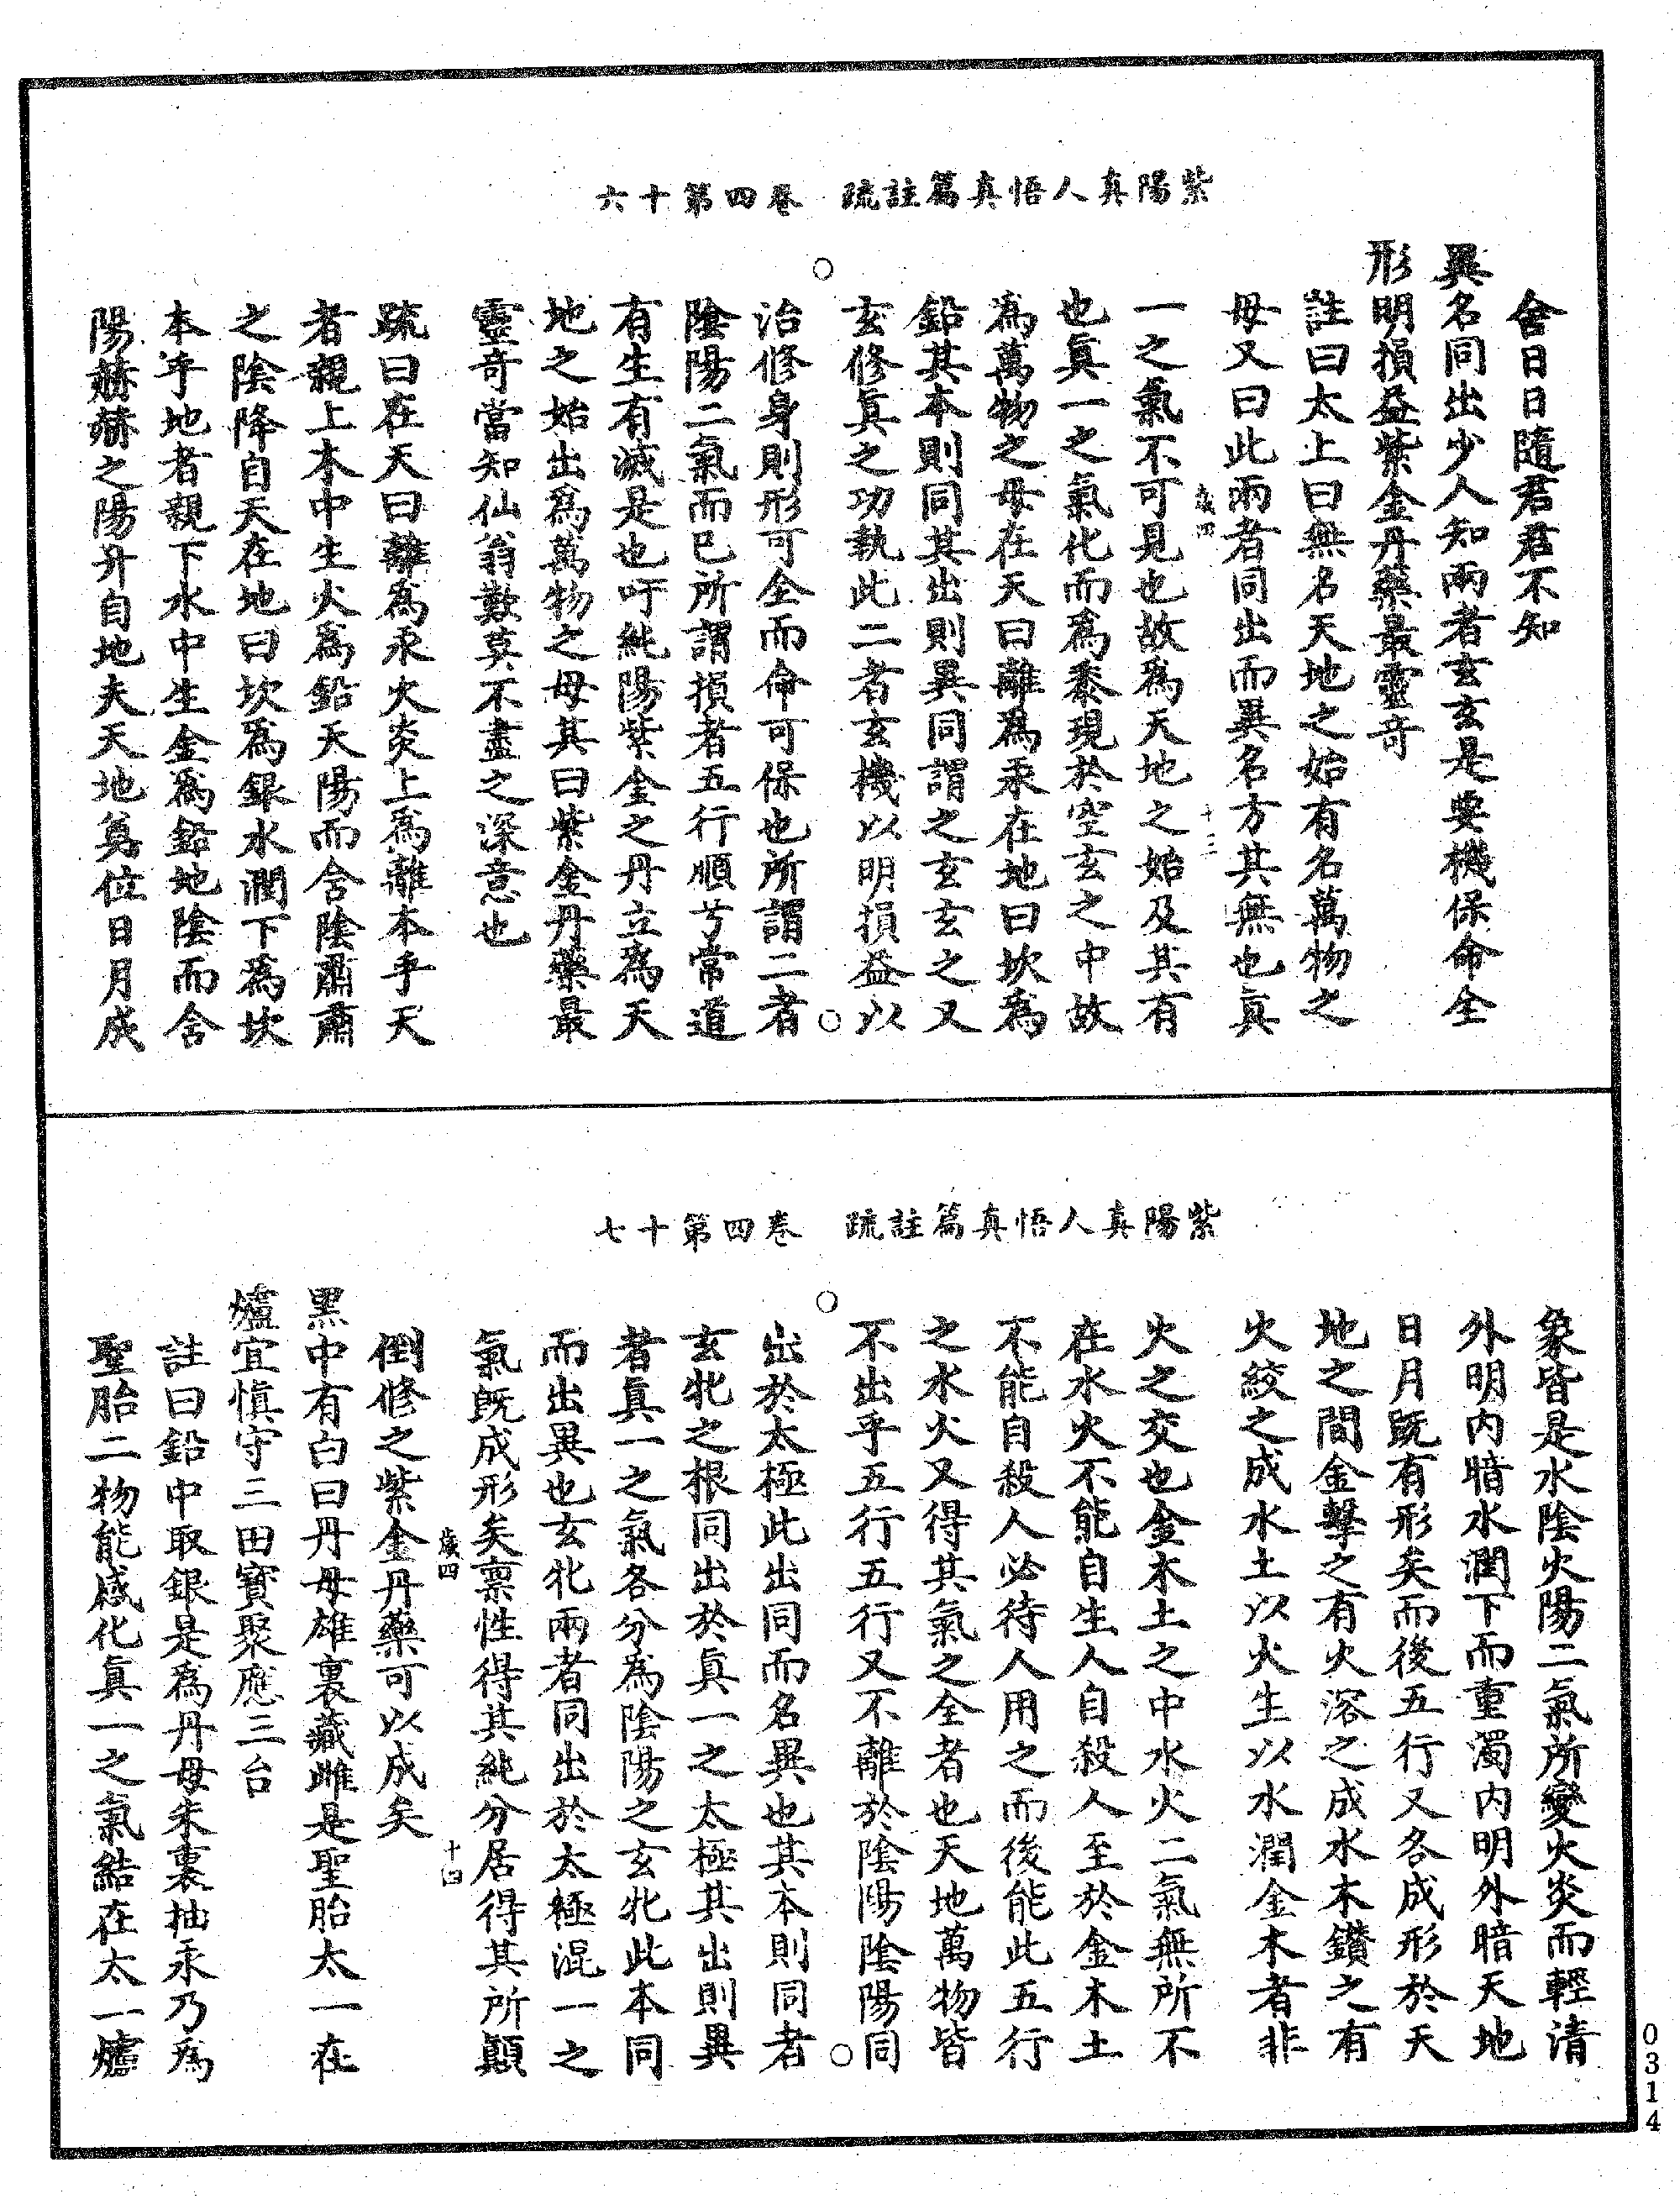 紫陽真人悟真篇註疏　卷四第十六
舍日日隨君君不知
異名同出少人知兩者玄玄是要機保命全
形明損益紫金丹藥最靈奇
註曰太上曰無名天地之始有名萬物之
母又曰此兩者同出而異名方其無也真
歲四　十三
一之氣不可見也故為天地之始及其有
也真一之氣化而為黍現於空玄之中故
為萬物之母在天曰離為汞在地曰坎為
鉛其本則同其出則異同謂之玄玄之又
玄修真之功執此二者玄機以明損益以
治修身則形可全而命可保也所謂二者
陰陽二氣而已所謂損者五行順兮常道
有生有滅是也吁純陽紫金之丹立為天
地之始出為萬物之母其曰紫金丹藥最
靈奇當知仙翁歎莫不盡之深意也
疏曰在天曰離為汞火炎上為離本乎天
者親上木中生火為鉛天陽而含陰肅肅
之陰降自天在地曰坎為銀水潤下為坎
本乎地者親下水中生金為鉛地陰而含
陽赫赫之陽升自地夫天地奠位日月成
紫陽真人悟真篇註疏　卷四第十七
象皆是水陰火陽二氣所變火炎而輕清
外明內暗水潤下而重濁內明外暗天地
日月既有形矣而後五行又各成形於天
地之間金擊之有火溶之成水木鑽之有
火絞之成水土以火生以水潤金木者非
火之交也金木土之中水火二氣無所不
在水火不能自生人自殺人至於金木土
不能自殺人必待人用之而後能此五行
之水火又得其氣之全者也天地萬物皆
不出乎五行五行又不離於陰陽陰陽同
出於太極此出同而名異也其本則同者
玄牝之根同出於真一之太極其出則異
者真一之氣各分為陰陽之玄牝此本同
而出異也玄牝兩者同出於太極混一之
氣既成形矣稟性得其純分居得其所顛
歲四　十四
倒修之紫金丹藥可以成矣
黑中有白曰丹母雄裏藏雌是聖胎太一在
爐宜慎守三田寶聚應三台
註曰鉛中取銀是為丹母朱裏抽汞乃為
聖胎二物能感化真一之氣結在太一爐
0314